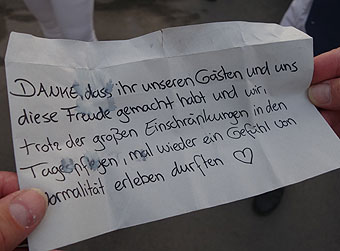 DANKE, dass ihr unseren Gästen und uns
diese Freude gemacht habt und wir,
trotz der großen Einschränkungen in den
Tagespflegen, mal wieder ein Gefühl von
Normalität erleben durften ♡